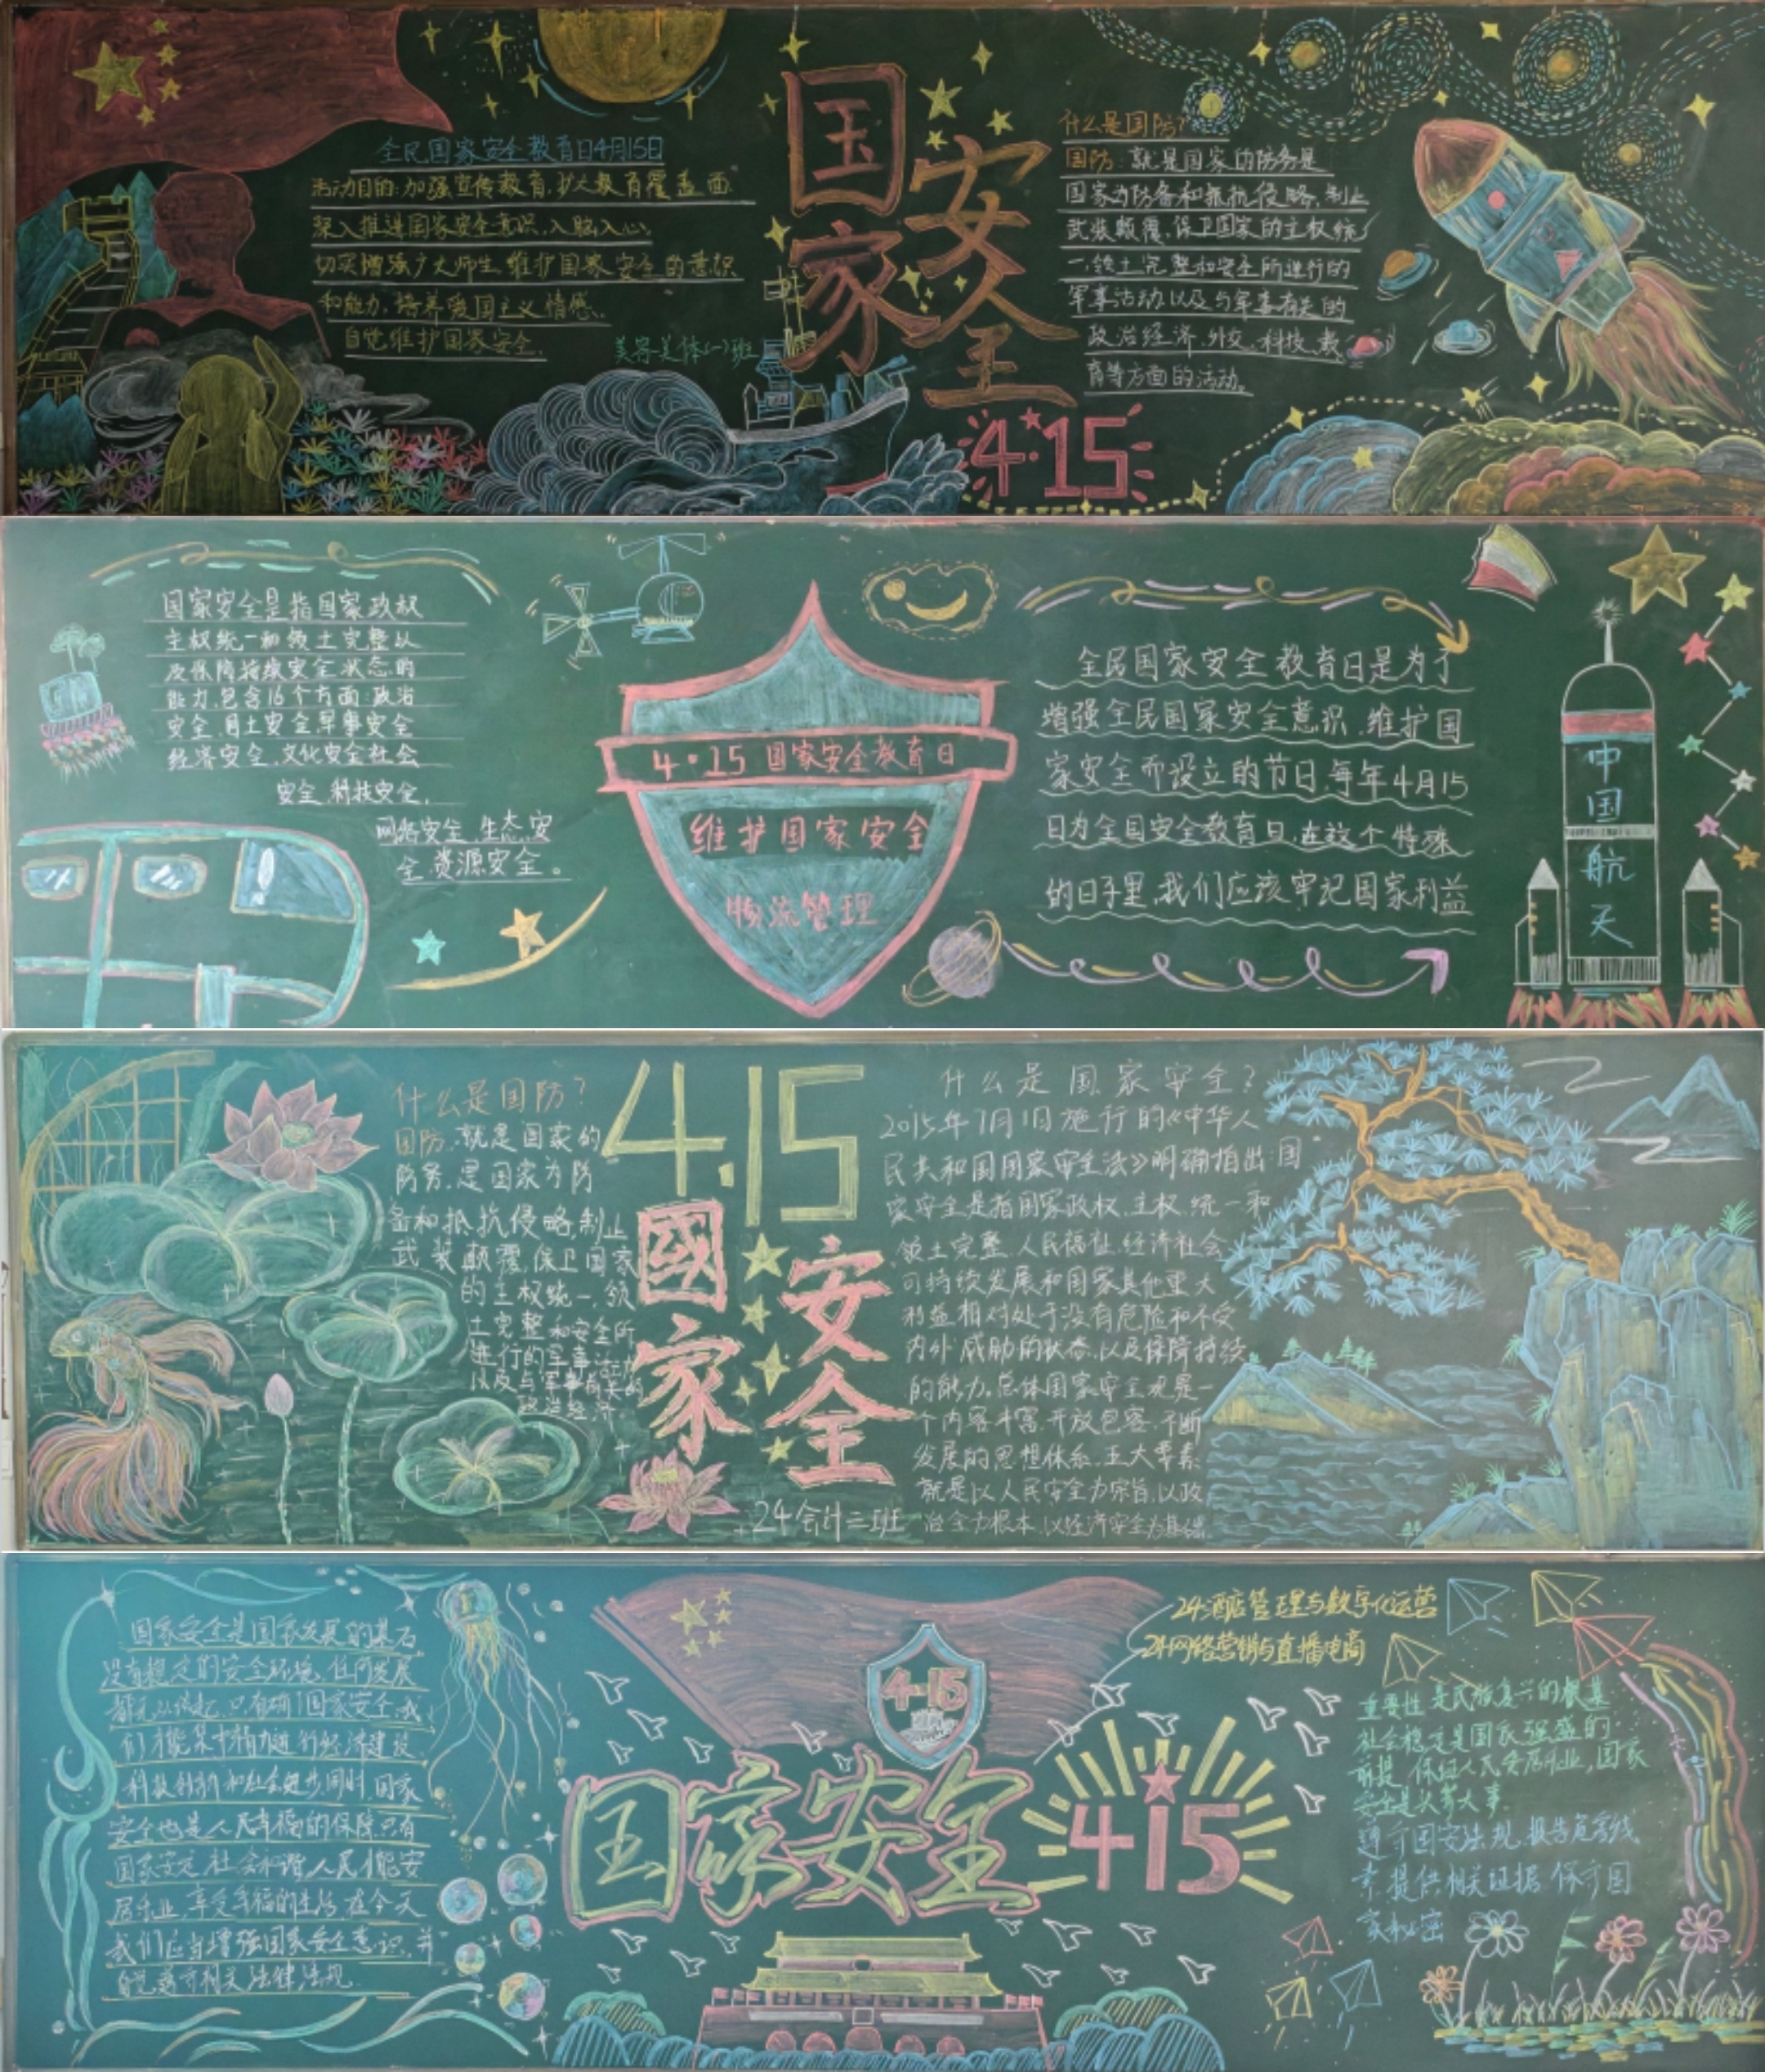 全民国家安全教育日4月15日
活动目的:加强宣传教育,扩大教育覆盖面
深入推进国家安全意识,入脑入心,
切实增强广大师生维护国家安全的意识
和能力,培养爱国主义情感.
自觉维护国家安全.
美容美体(一)班
国家安全
4·15
什么是国防?
国防:就是国家的防务是
国家为防备和抵抗侵略,制止
武装颠覆,保卫国家的主权统
一,领土完整和安全所进行的
军事活动以及与军事有关的
政治经济,外交,科技,教
育等方面的活动。
国家安全是指国家政权
主权统一和领土完整以
及保障持续安全状态的
能力,包含16个方面:政治
安全,国土安全,军事安全
经济安全,文化安全社会
安全,科技安全,
网络安全,生态安
全,资源安全。
4·15国家安全教育日
维护国家安全
物流管理
全民国家安全教育日是为了
增强全民国家安全意识,维护国
家安全而设立的节日,每年4月15
日为全国安全教育日,在这个特殊
的日子里,我们应该牢记国家利益
中国航天
什么是国防?
国防,就是国家的
防务,是国家为防
备和抵抗侵略,制止
武装颠覆,保卫国家
的主权统一,领
土完整和安全所
进行的军事活动
以及与军事有关的
政治经济
4.15
國家
安全
24会计三班
什么是国家安全?
2015年7月1日施行的《中华人
民共和国国家安全法》明确指出:国
家安全是指国家政权,主权,统一和
领土完整,人民福祉,经济社会
可持续发展和国家其他重大
利益相对处于没有危险和不受
内外威胁的状态,以及保障持续
的能力。总体国家安全观是一
个内容丰富,开放包容,不断
发展的思想体系,五大要素
就是以人民安全为宗旨,以政
治安全为根本,以经济安全为基础
国家安全是国家发展的基石
没有稳定的安全环境,任何发展
都无从谈起,只有确保国家安全,我
们才能集中精力进行经济建设
科技创新和社会进步,同时,国家
安全也是人民幸福的保障,只有
国家安定,社会和谐,人民才能安
居乐业,享受幸福的生活,在今天
我们应当增强国家安全意识,并
自觉遵守相关法律法规.
4·15
国家安全
415
24酒店管理与数字化运营
24网络营销与直播电商
重要性:是民族复兴的根基
社会稳定是国民强盛的
前提,保证人民安居乐业,国家
安全是头等大事
遵守国安法规,报告危害线
索,提供相关证据,保守国
家秘密